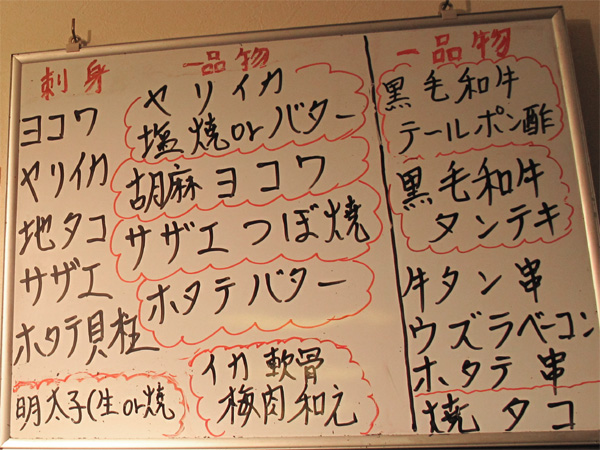 刺身
ヨコワ
ヤリイカ
地タコ
サザエ
ホタテ貝柱
明太子(生or焼
一品物
ヤリイカ
塩焼orバター
胡麻ヨコワ
サザエつぼ焼
ホタテバター
イカ軟骨
梅肉和え
一品物
黒毛和牛
テールポン酢
黒毛和牛
タンテキ
牛タン串
ウズラベーコン
ホタテ串
焼タコ